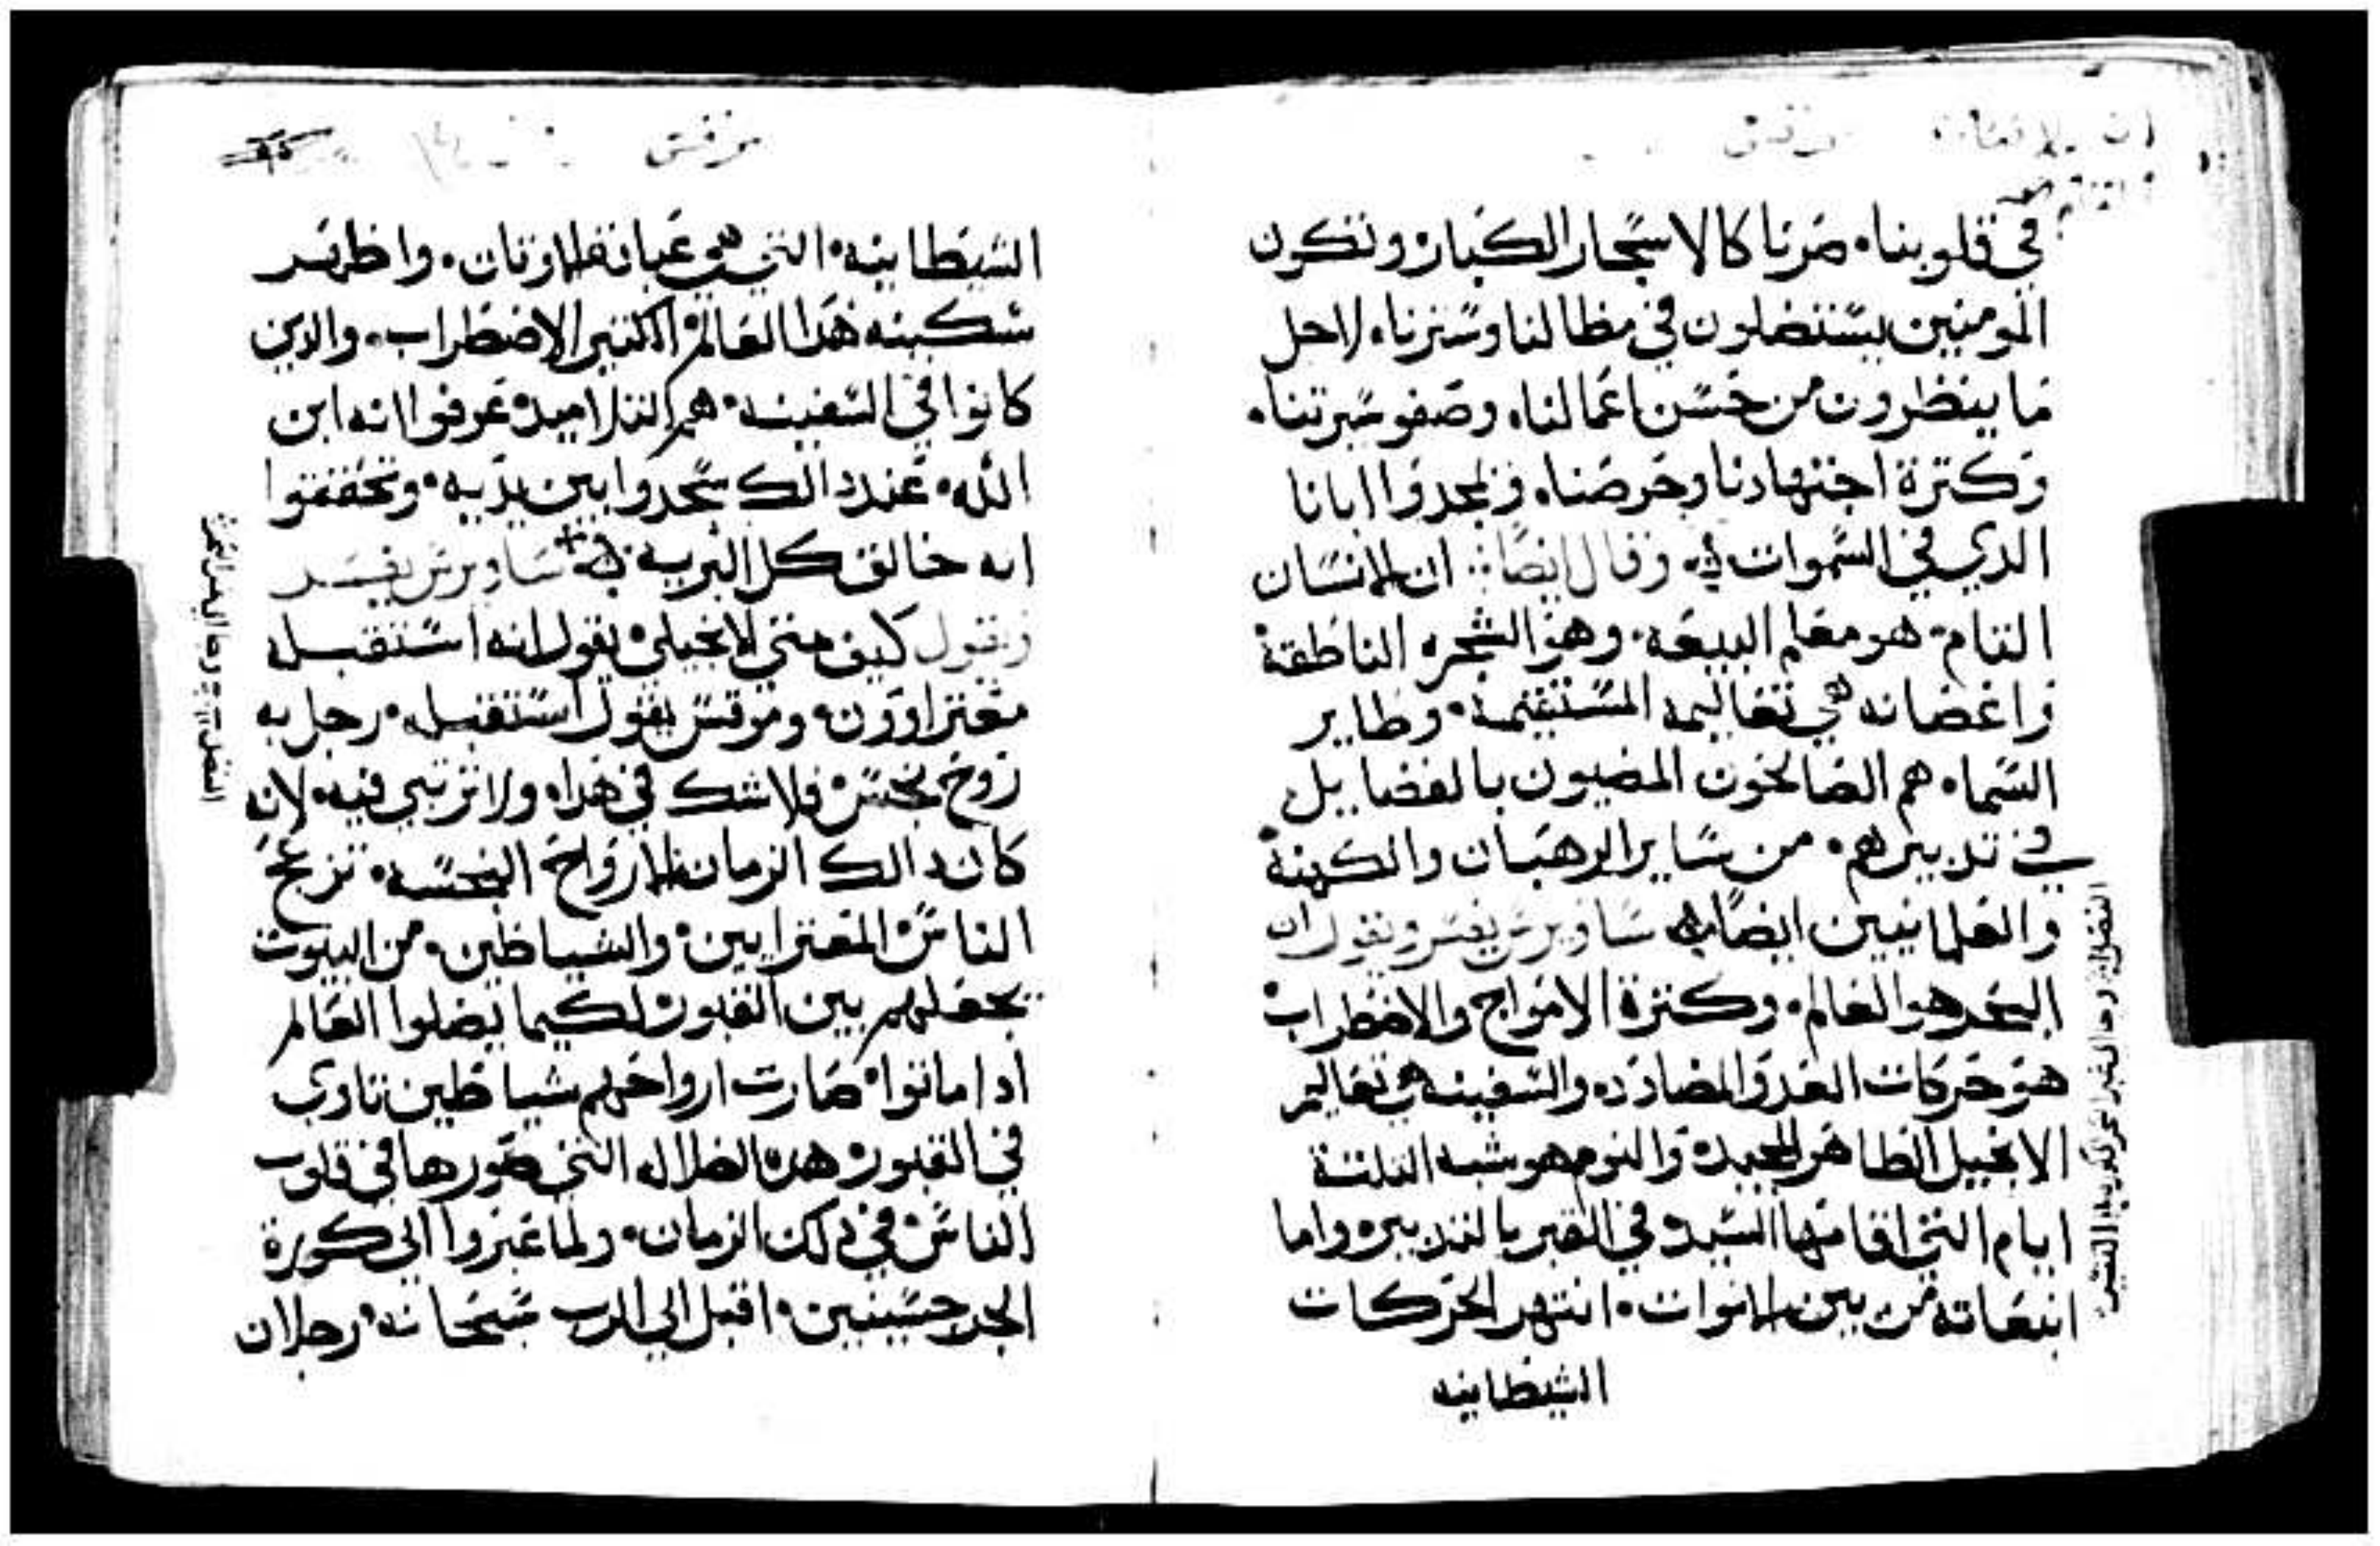 مرقس
في قلوبنا، صرنا كالاشجار الكبار، وتكون
المومنين يستضلون في مظالنا وسترنا، لاجل
ما ينظرون من حسن اعمالنا، وصفو سيرتنا،
وكترة اجتهادنا وحرصنا، ويمجدوا ابانا
الدي في السموات وقال ايضا: ان الانسان
التام، هو معلم البيعه، وهو الشجره الناطقة
واغصانه هي تعاليمه المستقيمة، وطاير
السما، هم الصالحون المضيون بالفضايل
في تدبيرهم، من ساير الرهبان والكهنة
والعلمانيين ايضا، ساويرس يفسر ويقول ان
البحر هو العالم، وكترة الامواج والاضطراب
هو حركات العدو المضادده والسفينه هي تعاليم
الانجيل الطاهر المجيد، والنوم هو شبه التلتة
ايام التي اقامها السيد في القبر بالتدبير، واما
انبعاته من بين الاموات، انتهر الحركات
الشيطانيه
مرقس
الشيطانيه، التي هي عبادة الاوتان، واظهر
سكينه هدا العالم الكتير الاضطراب، والدين
كانوا في السفينه، هم التلاميد، عرفوا انه ابن
الله، عند دالك سجدوا بين يديه، وتحققوا
انه خالق كل البريه ساويرس يفسر
ويقول كيف متى الانجيلي يقول انه استقبله
معتراوون، ومرقس يقول استقبله، رجل به
روح نجس، فلا شك في هدا، ولا ترتبي فيه، لان
كان دالك الزمان الارواح النجسه، تزعج
الناس، المعترايين، والشياطين، من البيوت
تجعلهم بين القبور، لكيما يضلوا العالم
ادا ماتوا، صارت ارواحهم شياطين تاوي
في القبور، هده الضلاله التي صورها في قلوب
الناس، في دلك الزمان، ولما عبروا الى كورة
الجرجسيين، اقبل الى الرب سبحانه، رجلان